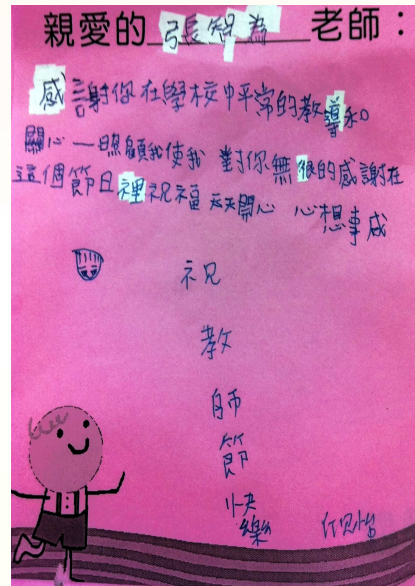 親愛的張智為老師：
感謝你在學校中平常的教導和
關心一照顧我使我對你無限的感謝在
這個節日裡祝福天天開心 心想事成
祝
教
師
節
快
樂